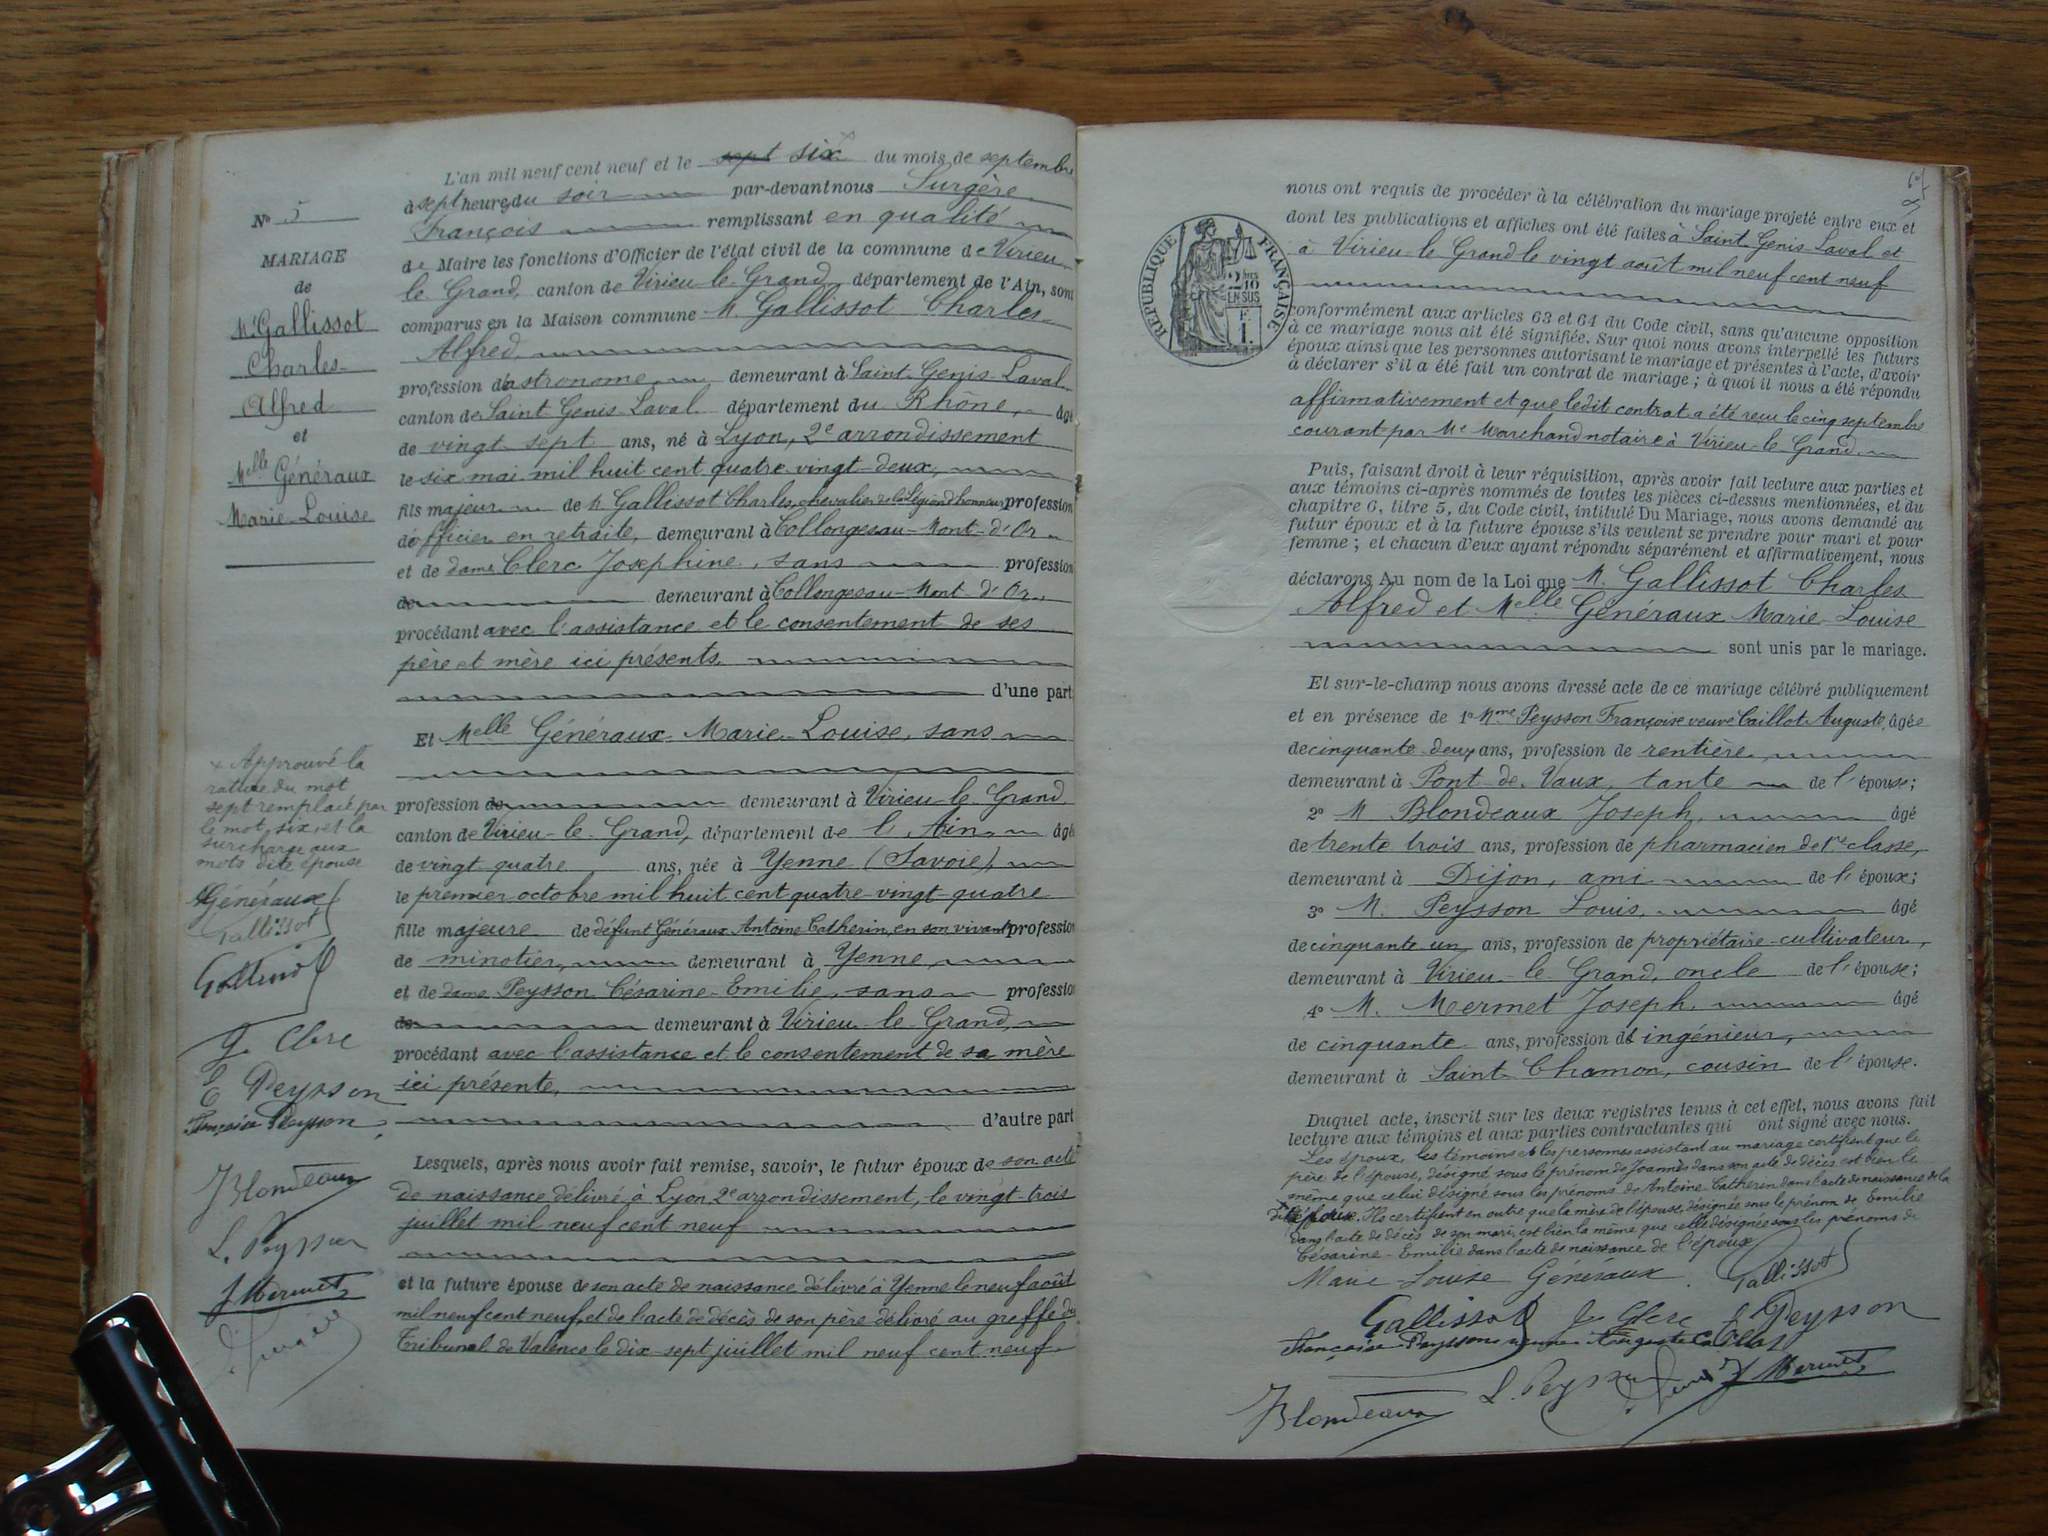 N° 5
MARIAGE
de
Mr Gallissot
Charles-
Alfred
et
Melle Généraux
Marie-Louise
x Approuvé la
rature du mot
sept remplacé par
le mot six, et la
surcharge aux
mots dite épouse
Généraux
Gallissot
Gallissot
J. Clerc
E Peysson
Françoise Peysson
J Blondeaux
L. Peysson
J Mermet
L'an mil neuf cent neuf et le sept six x du mois de septembre
à sept heures du soir par-devant nous Surgère
François remplissant en qualité
de Maire les fonctions d'Officier de l'état civil de la commune de Virieu-
le Grand, canton de Virieu-le-Grand, département de l'Ain, sont
comparus en la Maison commune M. Gallissot Charles-
Alfred,
profession d'astronome, demeurant à Saint-Genis-Laval
canton de Saint-Genis-Laval département du Rhône, âgé
de vingt-sept ans, né à Lyon, 2e arrondissement
le six mai mil huit cent quatre-vingt-deux,
fils majeur de M. Gallissot Charles, chevalier de la Légion d'honneur profession
d'officier en retraite, demeurant à Collonges-au-Mont-d'Or
et de dame Clerc Joséphine, sans profession
de demeurant à Collonges-au-Mont-d'Or,
procédant avec l'assistance et le consentement de ses
père et mère ici présents
d'une part
Et Melle Généraux Marie-Louise, sans
profession de demeurant à Virieu-le-Grand
canton de Virieu-le-Grand, département de l'Ain, âgée
de vingt-quatre ans, née à Yenne (Savoie),
le premier octobre mil huit cent quatre-vingt-quatre
fille majeure de défunt Généraux Antoine Catherin, en son vivant profession
de minotier, demeurant à Yenne,
et de dame Peysson Césarine-Emilie, sans profession
de demeurant à Virieu-le-Grand,
procédant avec l'assistance et le consentement de sa mère
ici présente,
d'autre part
Lesquels, après nous avoir fait remise, savoir, le futur époux de son acte
de naissance délivré à Lyon, 2e arrondissement, le vingt-trois
juillet mil neuf cent neuf
et la future épouse de son acte de naissance délivré à Yenne le neuf août
mil neuf cent neuf, et de l'acte de décès de son père délivré au greffe du
Tribunal de Valence le dix-sept juillet mil neuf cent neuf.
RÉPUBLIQUE FRANÇAISE
2/10 EN SUS
F. 1.
nous ont requis de procéder à la célébration du mariage projeté entre eux et
dont les publications et affiches ont été faites à Saint-Genis-Laval et
à Virieu-le-Grand le vingt août mil neuf cent neuf
conformément aux articles 63 et 64 du Code civil, sans qu'aucune opposition
à ce mariage nous ait été signifiée. Sur quoi nous avons interpellé les futurs
époux ainsi que les personnes autorisant le mariage et présentes à l'acte, d'avoir
à déclarer s'il a été fait un contrat de mariage ; à quoi il nous a été répondu
affirmativement et que ledit contrat a été reçu le cinq septembre
courant par Me Marchand notaire à Virieu-le-Grand.
Puis, faisant droit à leur réquisition, après avoir fait lecture aux parties et
aux témoins ci-après nommés de toutes les pièces ci-dessus mentionnées, et du
chapitre 6, titre 5, du Code civil, intitulé Du Mariage, nous avons demandé au
futur époux et à la future épouse s'ils veulent se prendre pour mari et pour
femme ; et chacun d'eux ayant répondu séparément et affirmativement, nous
déclarons Au nom de la Loi que M. Gallissot Charles
Alfred et Melle Généraux Marie-Louise
sont unis par le mariage.
Et sur-le-champ nous avons dressé acte de ce mariage célébré publiquement
et en présence de 1° Mme Peysson Françoise veuve Caillot Auguste, âgée
de cinquante-deux ans, profession de rentière,
demeurant à Pont-de-Vaux, tante de l'épouse;
2° M Blondeaux Joseph, âgé
de trente-trois ans, profession de pharmacien de 1re classe,
demeurant à Dijon, ami de l'époux;
3° M. Peysson Louis, âgé
de cinquante un ans, profession de propriétaire-cultivateur,
demeurant à Virieu-le-Grand, oncle de l'épouse;
4° M. Mermet Joseph, âgé
de cinquante ans, profession d'ingénieur,
demeurant à Saint-Chamon, cousin de l'épouse.
Duquel acte, inscrit sur les deux registres tenus à cet effet, nous avons fait
lecture aux témoins et aux parties contractantes qui ont signé avec nous.
Les époux, les témoins et les personnes assistant au mariage certifient que le
père de l'épouse, désigné sous le prénom de Joannès dans son acte de décès est bien le
même que celui désigné sous les prénoms de Antoine Catherin dans l'acte de naissance de la
dite épouse. Ils certifient en outre que la mère de l'épouse, désignée sous le prénom de Emilie
dans l'acte de décès de son mari, est bien la même que celle désignée sous les prénoms de
Césarine-Emilie dans l'acte de naissance de l'épouse
Marie-Louise Généraux. Gallissot
Gallissot J. Clerc E Peysson
Françoise Peysson veuve Auguste Caillot
J Blondeaux L. Peysson J Mermet